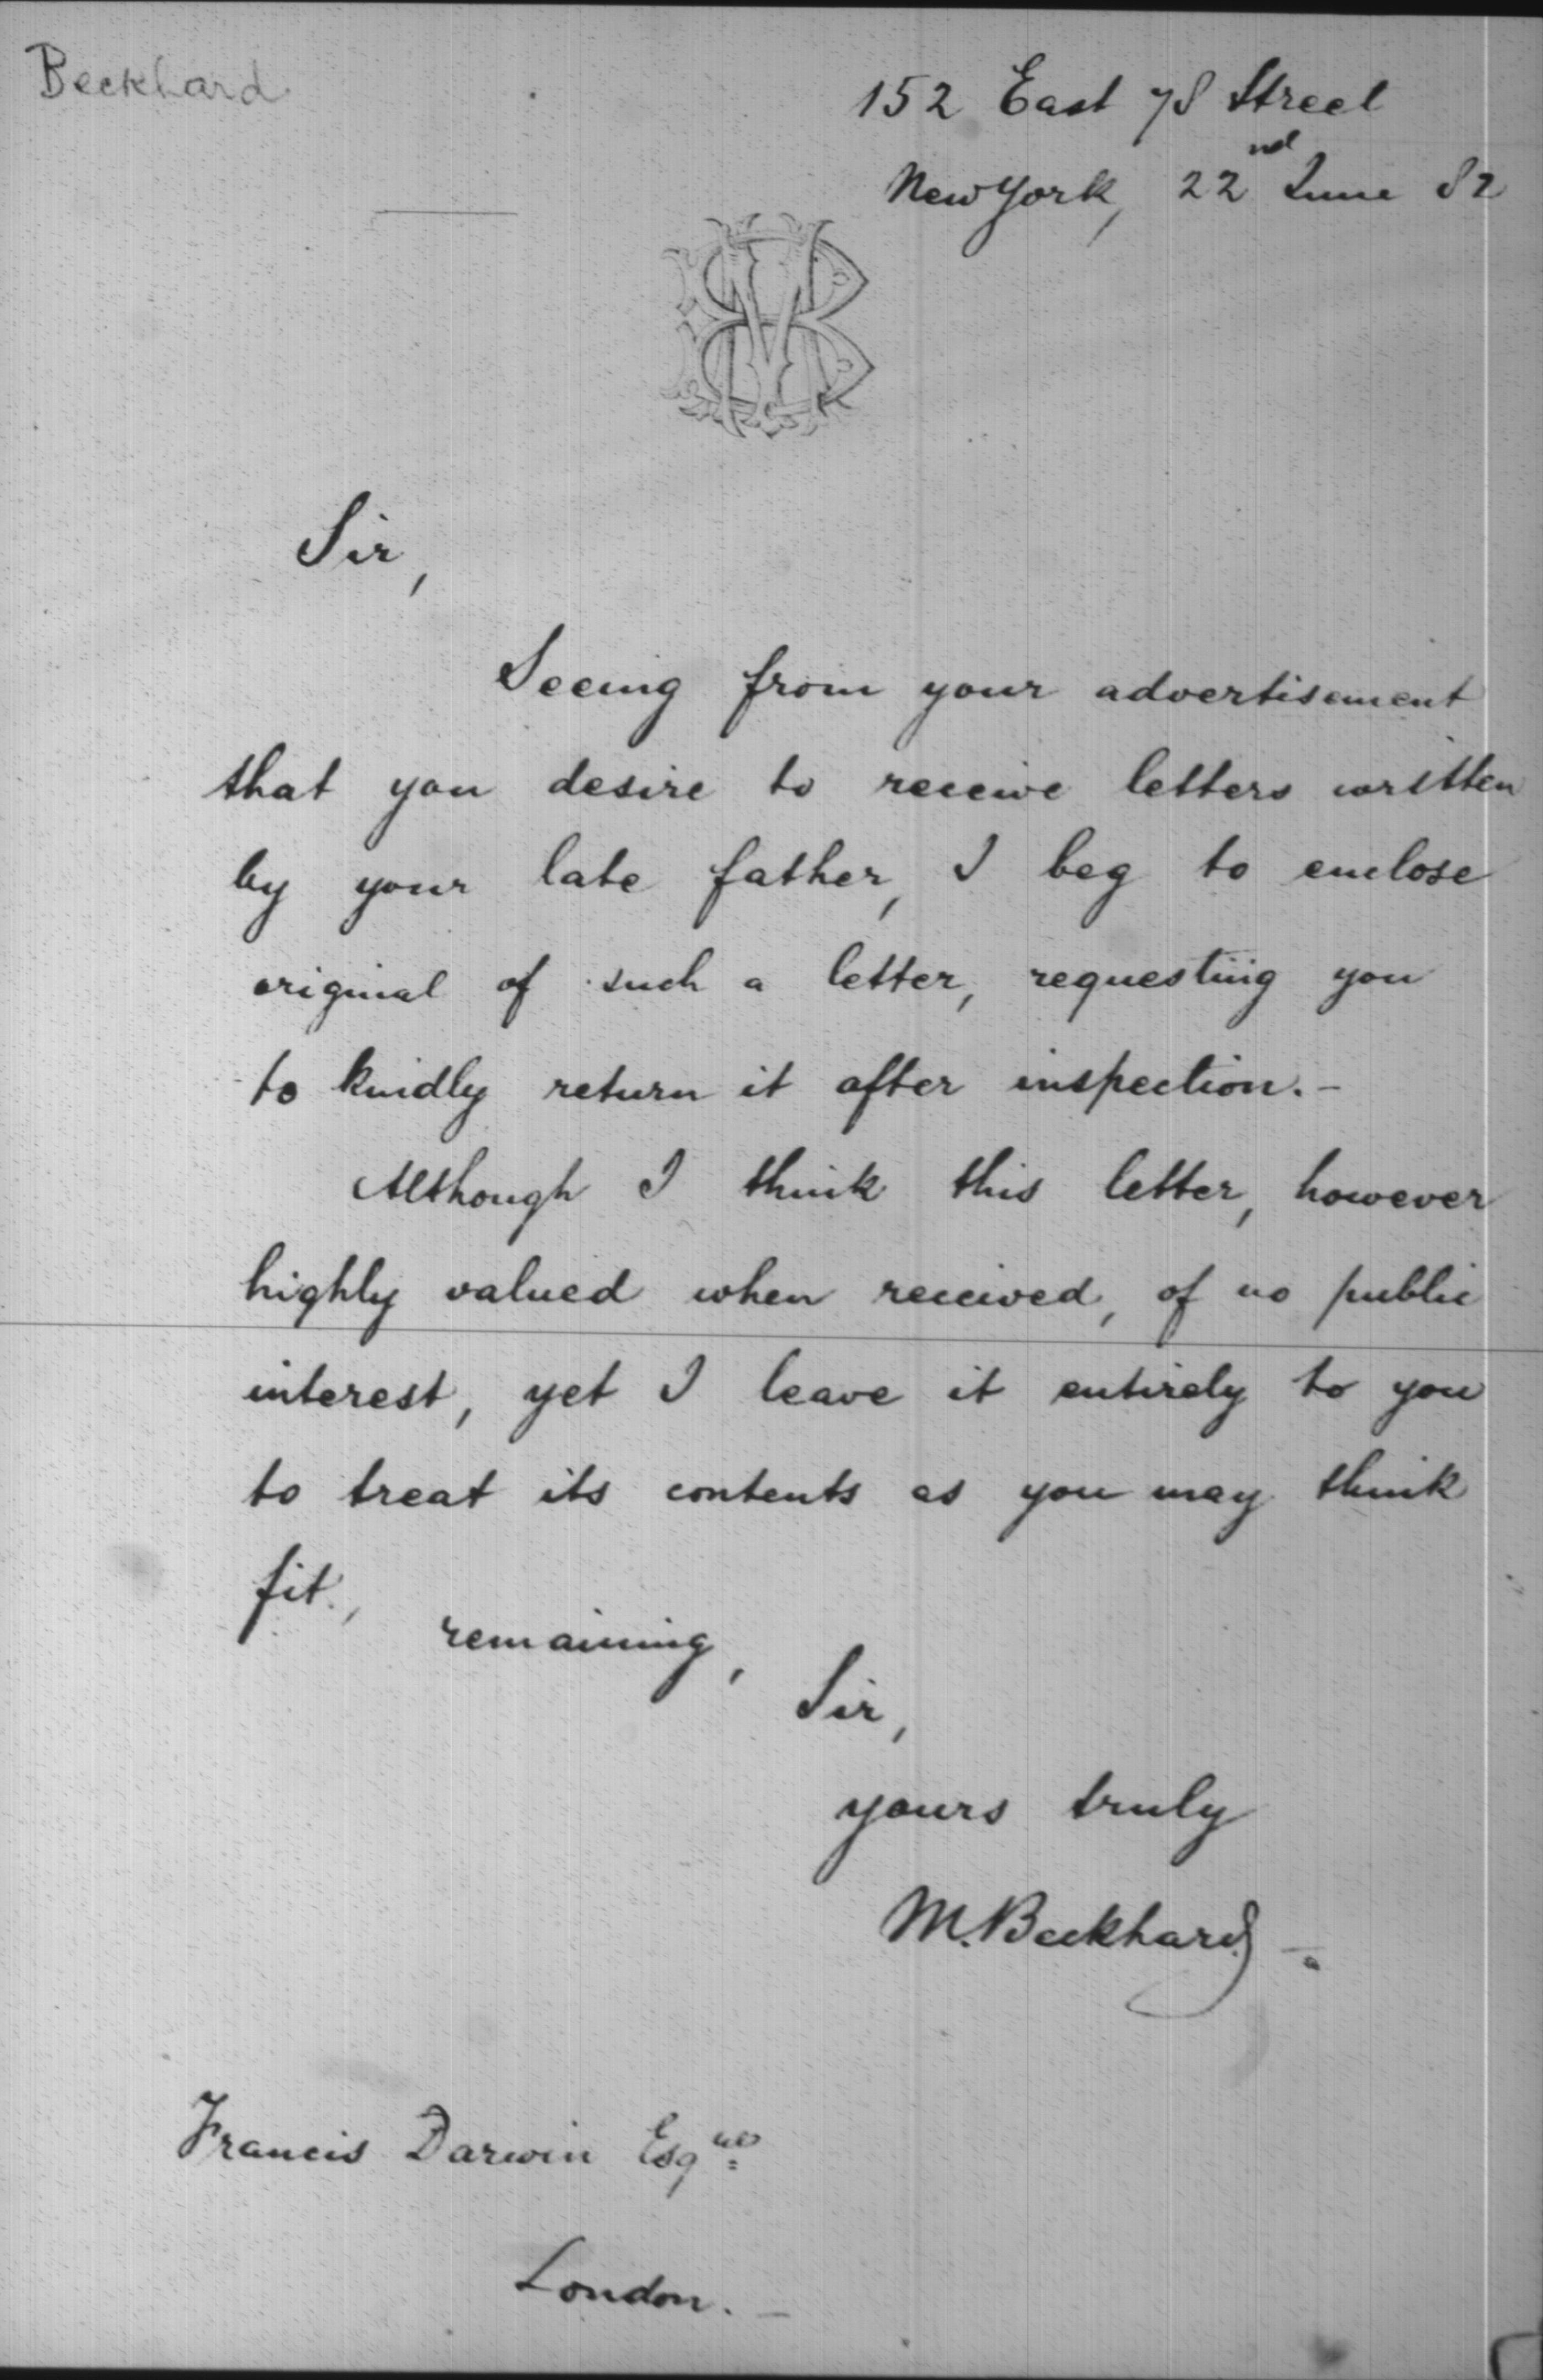 Beckhard
152 East 78 Street
New York, 22nd June 82
Sir,
Seeing from your advertisement
that you desire to receive letters written
by your late father, I beg to enclose
original of such a letter, requesting you
to kindly return it after inspection.-
Although I think this letter, however
highly valued when received, of no public
interest, yet I leave it entirely to you
to treat its contents as you may think
fit.,
remaining,
Sir,
yours truly
M. Beckhard -
Francis Darwin Esqre
London. -